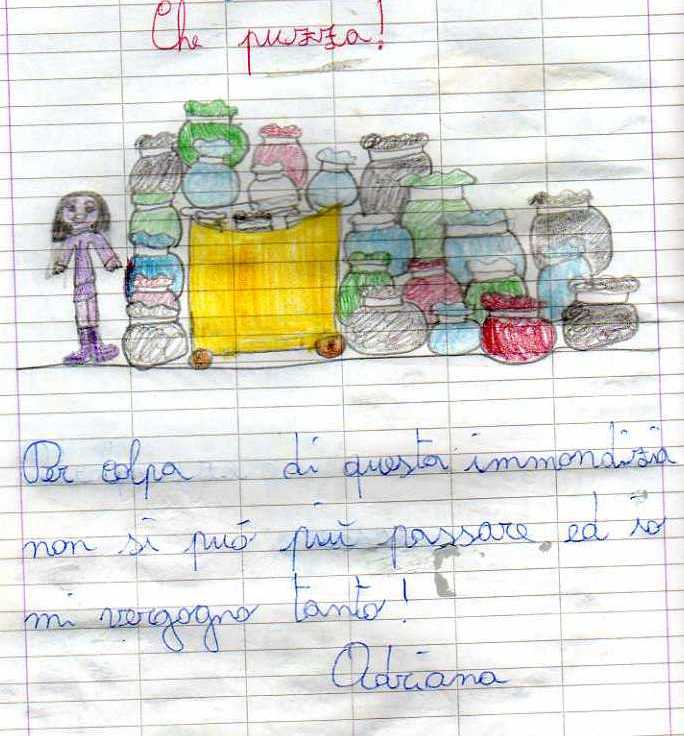 Che puzza!
Per colpa di questa immondizia
non si può più passare ed io
mi vergogno tanto!
Adriana